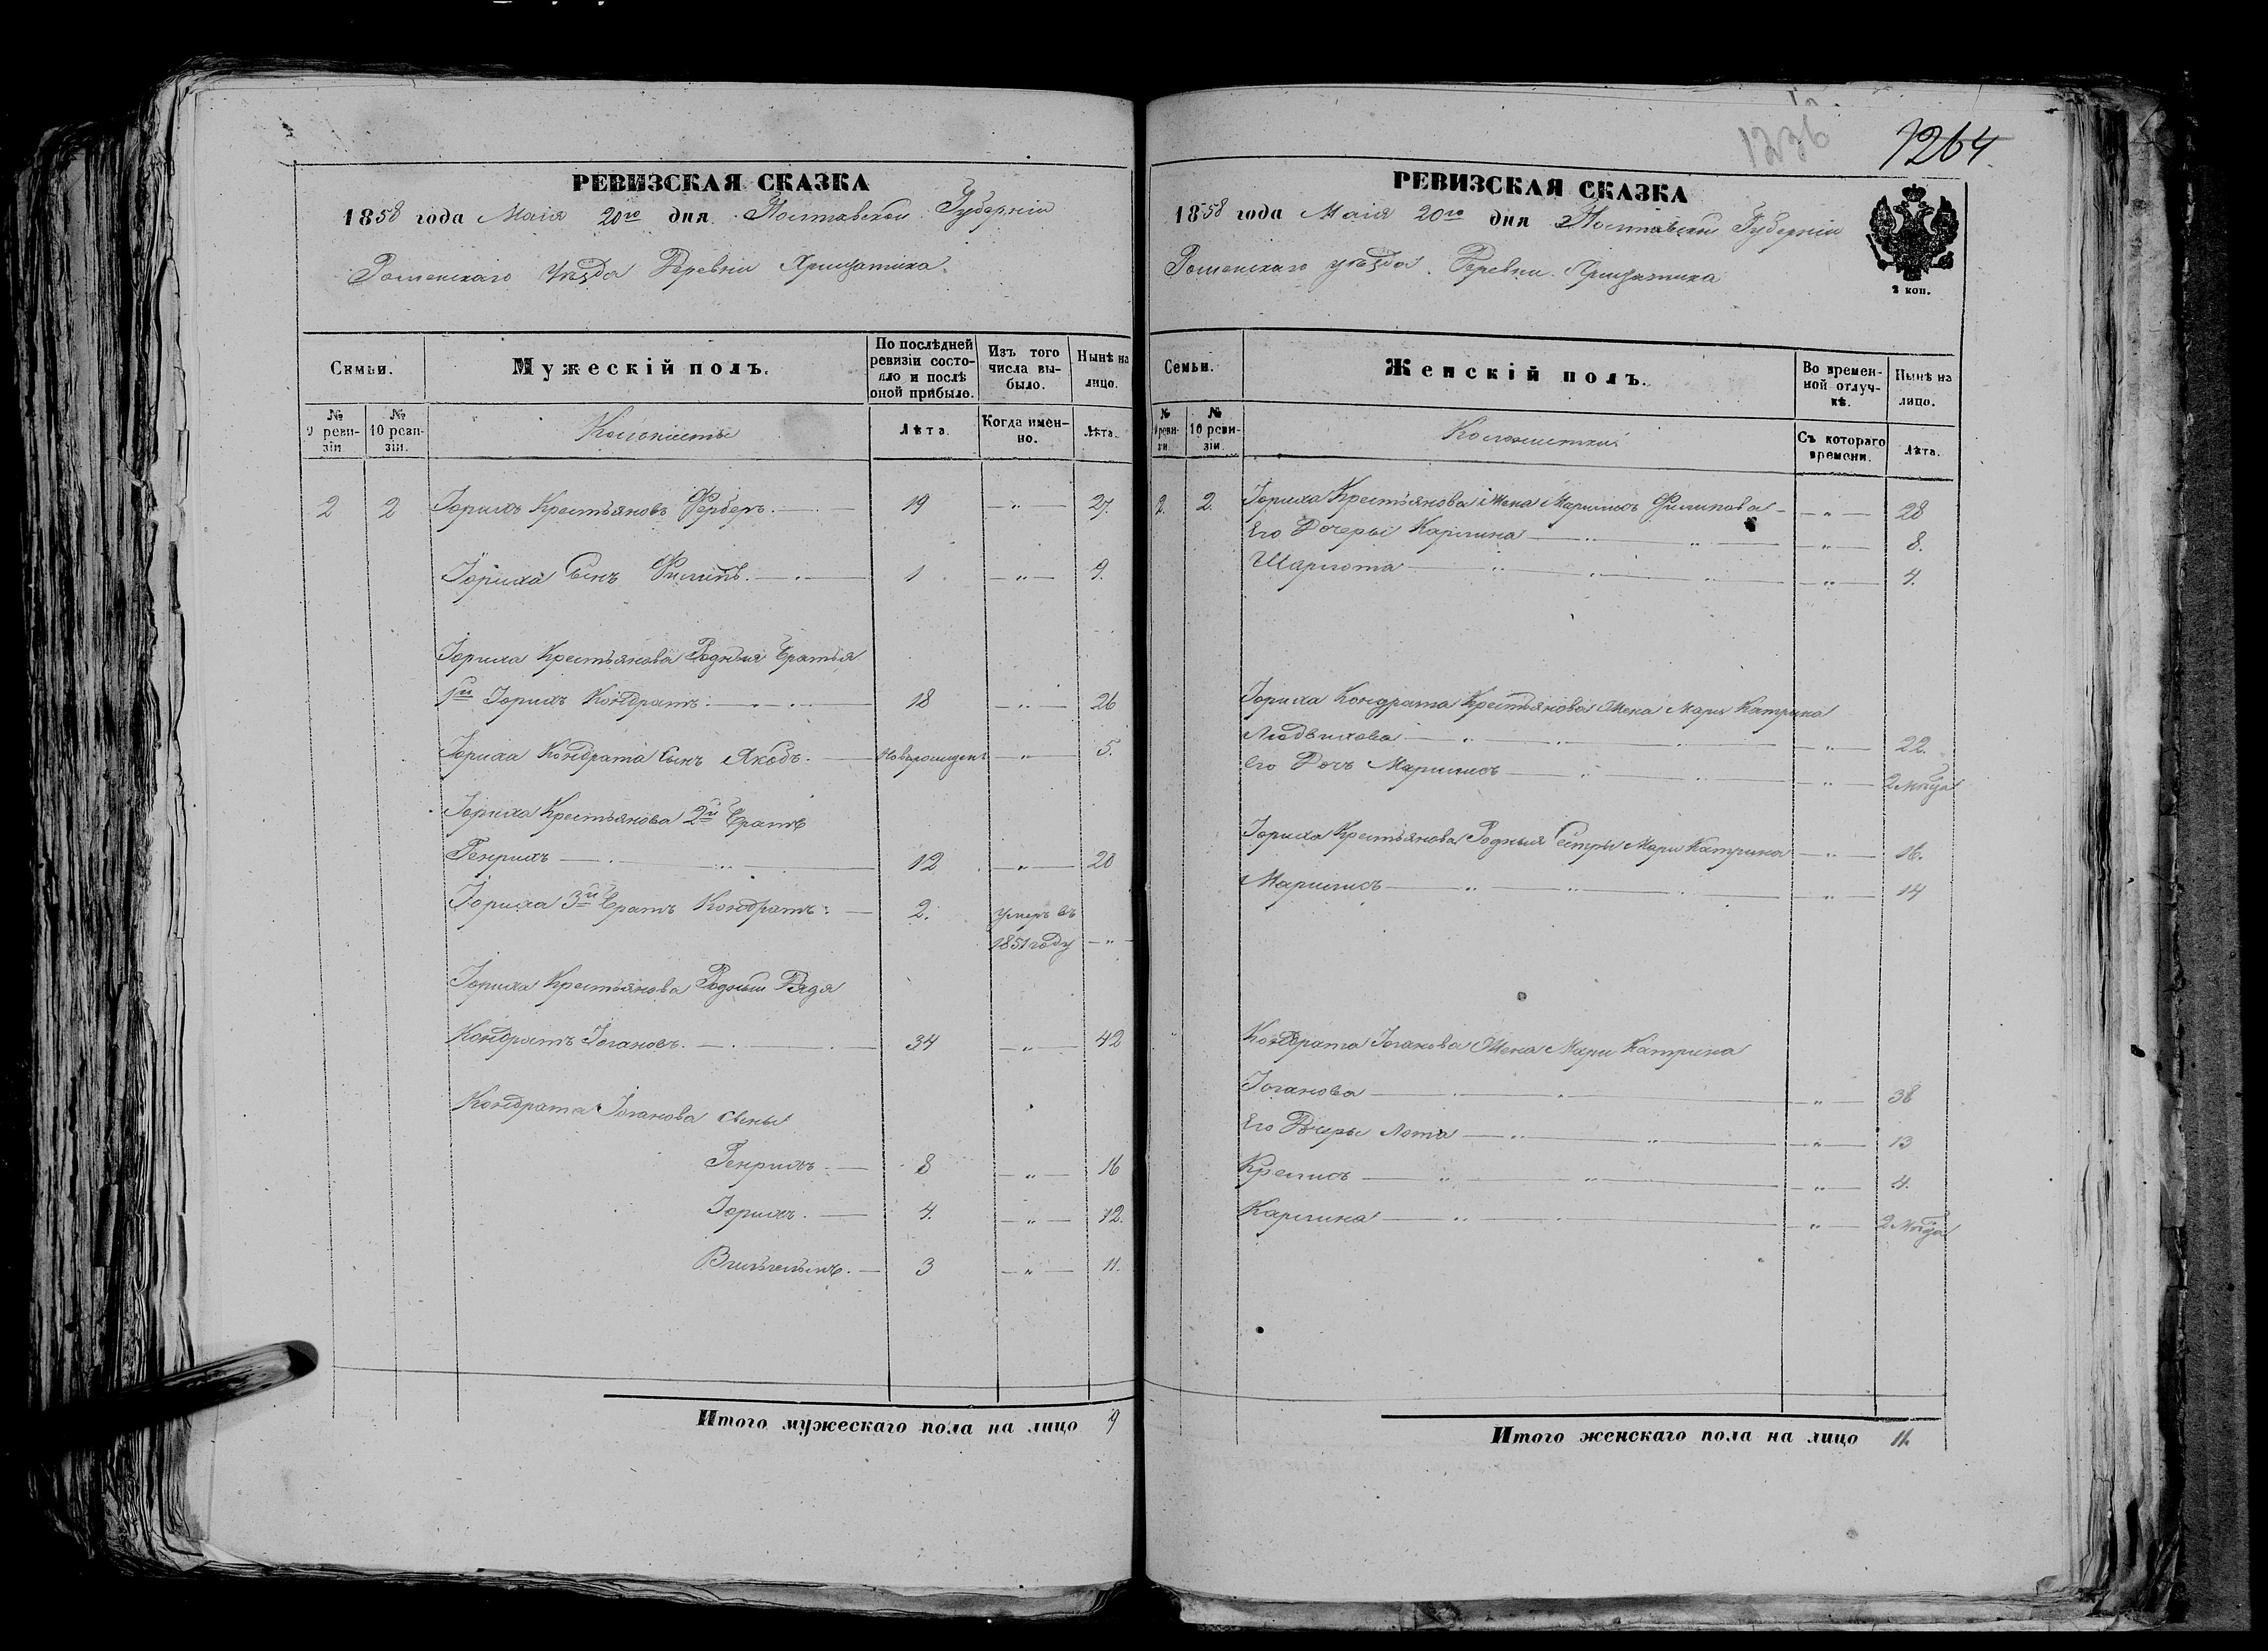 РЕВИЗСКАЯ СКАЗКА
1858 года Маія 20го дня Полтавской Губерніи
Роменскаго Уѣзда Деревни Хрищатика
Семьи.
Мужескій полъ.
По послѣдней ревизіи состояло и послѣ оной прибыло.
Изъ того числа выбыло.
Нынѣ на лицо.
№ 9 ревизіи
№ 10 ревизіи.
Колонисты
Лѣта.
Когда именно.
Лѣта.
2 2 Іорихъ Крестьяновъ Ферберъ. 19 — " — 27.
Іориха Сынъ Филипъ. 1 — " — 9.
Іориха Крестьянова Родныя братья
1й Іорихъ Кондратъ 18 — " — 26
Іориха Кондрата сынъ Якобъ. Новорожденъ — " — 5.
Іориха Крестьянова 2й братъ
Генрихъ 12 — " — 20
Іориха 3й братъ Кондратъ 2. умеръ въ
1851 году — " —
Іориха Крестьянова Родный Дядя
Кондратъ Іогановъ. 34 — " — 42
Кондрата Іоганова сыны
Генрихъ 8 — " — 16
Іорихъ. 4. — " — 12.
Вильгельмъ. 3 — " — 11.
Итого мужескаго пола на лицо 9
1236
1264
РЕВИЗСКАЯ СКАЗКА
1858 года Маія 20го дня Полтавской Губерніи
Роменскаго уѣзда. Деревни Хрищатика
2 коп.
Семьи.
Женскій полъ.
Во временной отлучкѣ.
Нынѣ на лицо.
№ 9 ревизіи.
№ 10 ревизіи.
Колонистки
Съ котораго времени.
Лѣта.
2. 2. Іориха Крестьянова Жена Марилисъ Филипова — " — 28
Его Дочеры Карлина — " — 8.
Шарлота — " — 4.
Іориха Кондрата Крестьянова Жена Мари Катрина
Людвихова — " — 22.
Его Дочь Марилисъ — " — 2 мѣсяца
Іориха Крестьянова Родныя Сестры Мари Катрина — " — 16.
Марилисъ — " — 14
Кондрата Іоганова Жена Мари Катрина
Іоганова — " — 38
Его Дочеры Лота — " — 13
Крелисъ — " — 4.
Карлина — " — 2 мѣсяца
Итого женскаго пола на лицо 11.